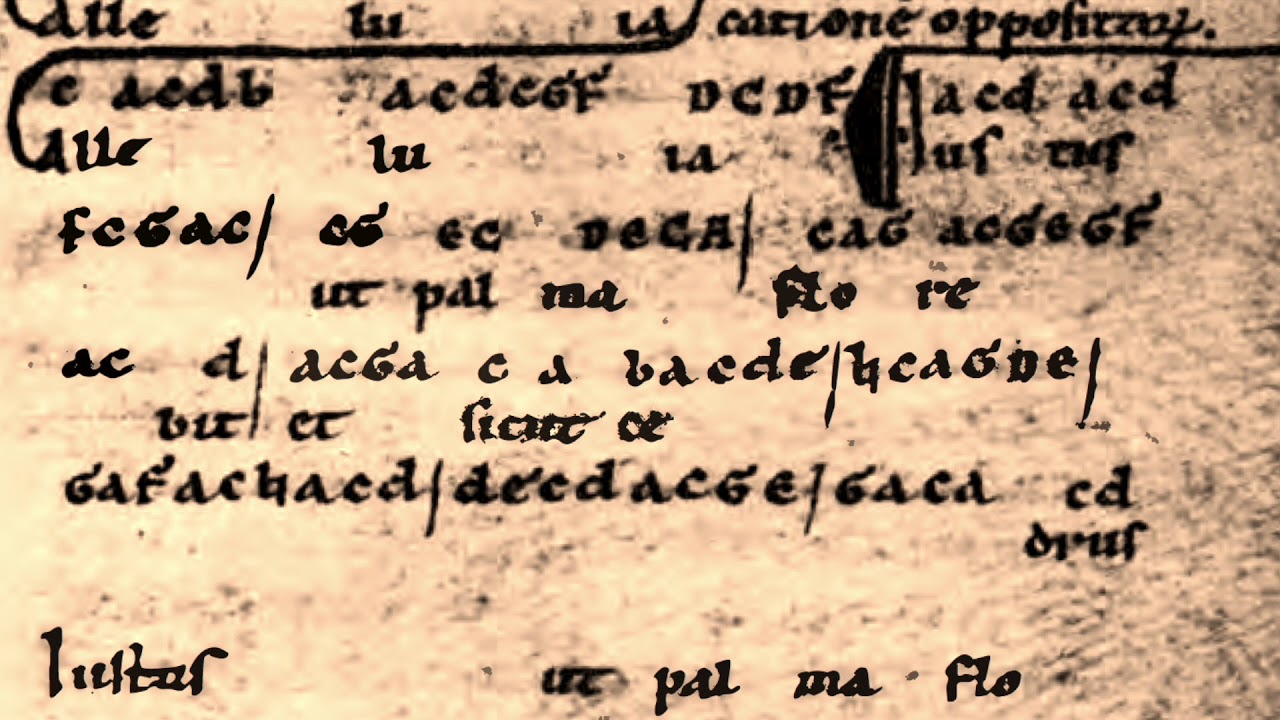 Alle lu ia catione oppositarum.
c acdb acdeGF DCDF acd acd
Alle lu ia ius tus
FCGAC/ CG EC DEGA/ CAG ACGEGF
ut pal ma flo re
ac d/ acGa c a bacde/ hcaGDE/
bit et sicut ce
GaFachacd/ decdacGE/ Gaca cd
drus
Iustus ut pal ma flo